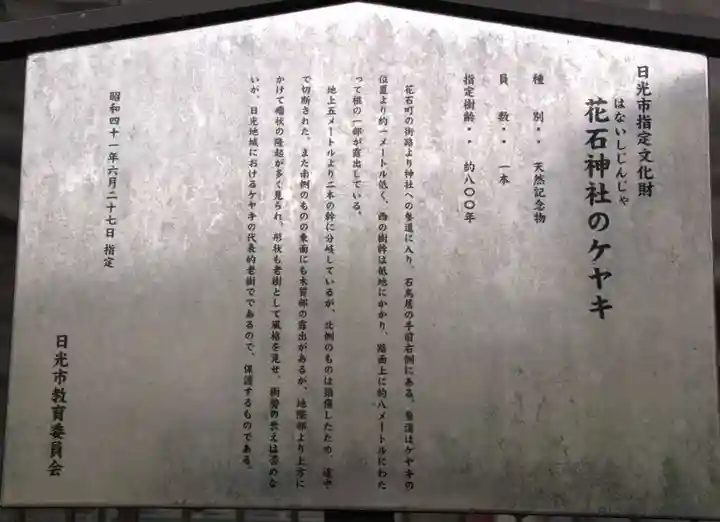 日光市指定文化財
はないしじんじゃ
花石神社のケヤキ
種 別・・ 天然記念物
員 数・・ 一本
指定樹齢・・ 約八〇〇年
花石町の街路より神社への参道に入り、石鳥居の手前右側にある。参道はケヤキの
位置より約一メートル低く、西の樹幹は低地にかかり、路面上に約八メートルにわた
って根の一部が露出している。
地上五メートルより二本の幹に分岐しているが、北側のものは損傷したため、途中
で切断された。また南側のものの東面にも木質部の露出があるが、地際部より上方に
かけて瘤状の隆起が多く見られ、形状も老樹として風格を見せ、樹勢の衰えは否めな
いが、日光地域におけるケヤキの代表的老樹でであるので、保護するものである。
昭和四十一年六月二十七日 指定
日光市教育委員会